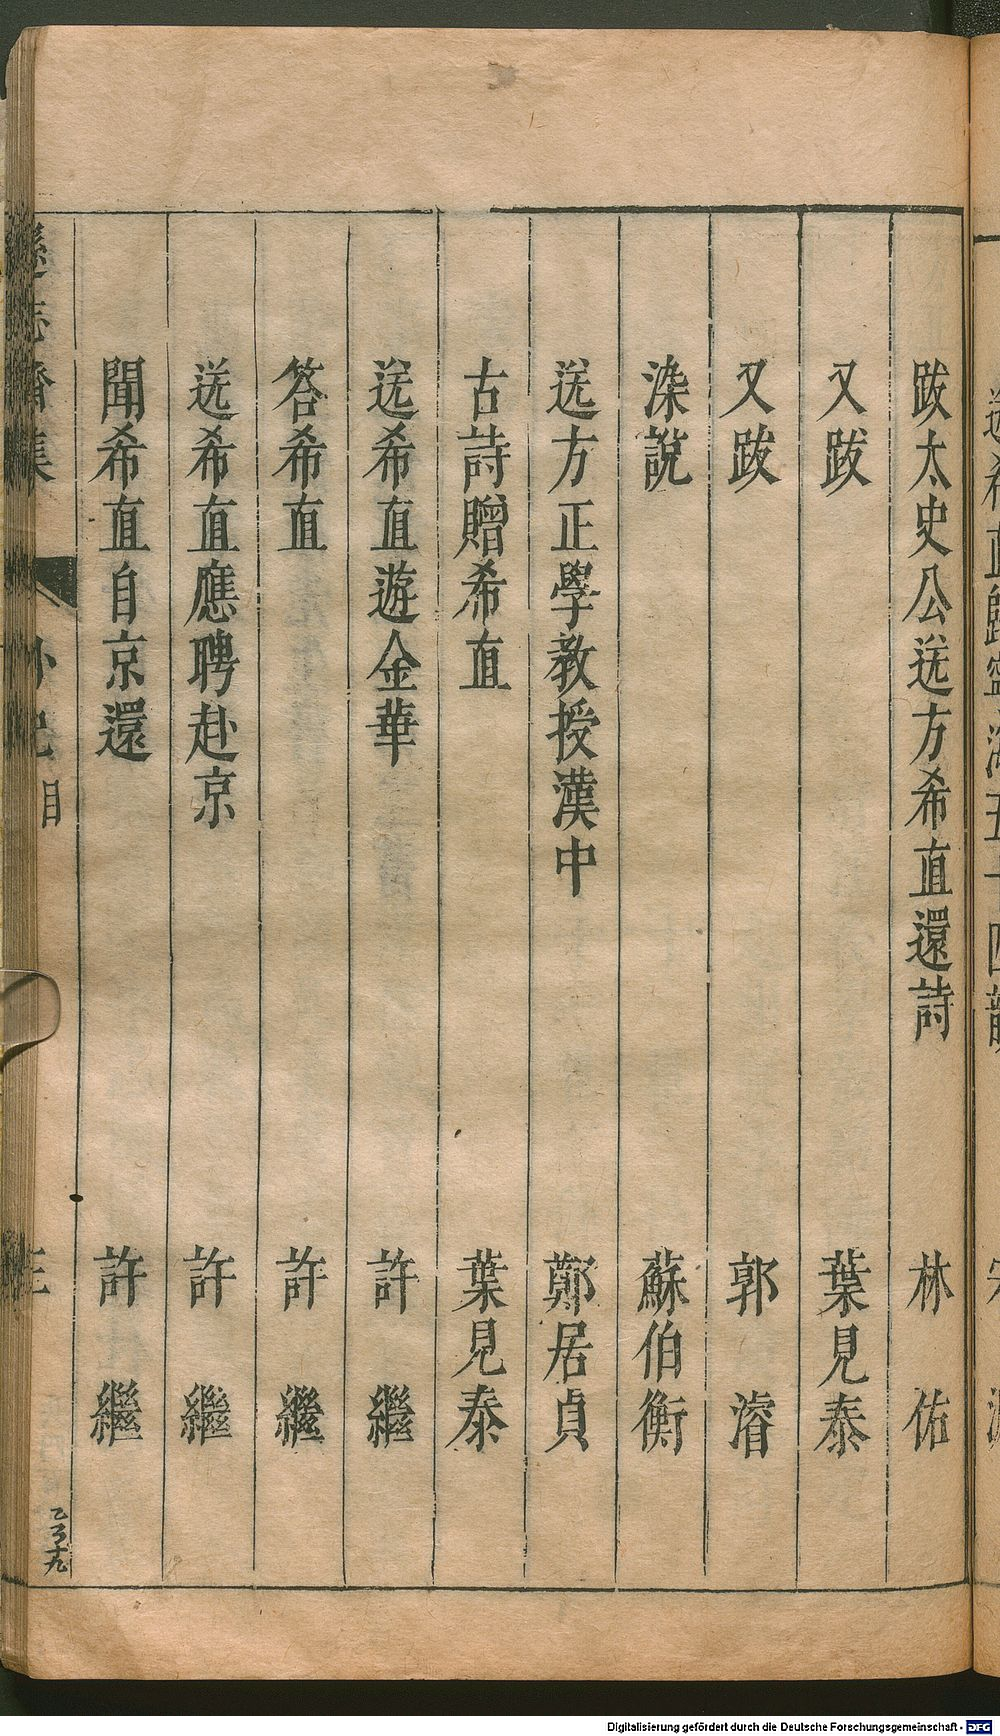 跋太史公送方希直還詩　林佑
又跋　葉見泰
又跋　郭濬
染說　蘇伯衡
送方正學教授漢中　鄭居貞
古詩贈希直　葉見泰
送希直遊金華　許繼
答希直　許繼
送希直應聘赴京　許繼
聞希直自京還　許繼
遜志齋集
Digitalisierung gefördert durch die Deutsche Forschungsgemeinschaft - DFG